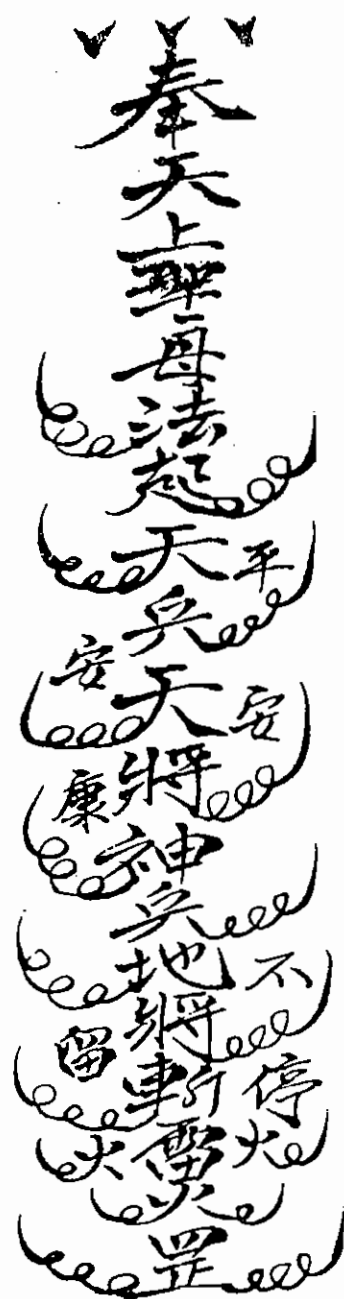 奉天上聖母法起天兵天將神兵地將斬雷火罡
平安
安康
不停
留
火
火